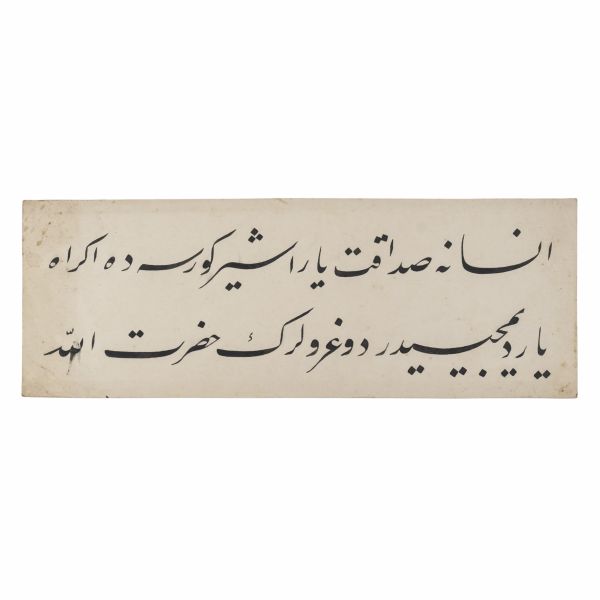 انسانه صداقت ياراشير كورسه ده اكراه
ياردمجيسيدر دوغرولرك حضرت الله